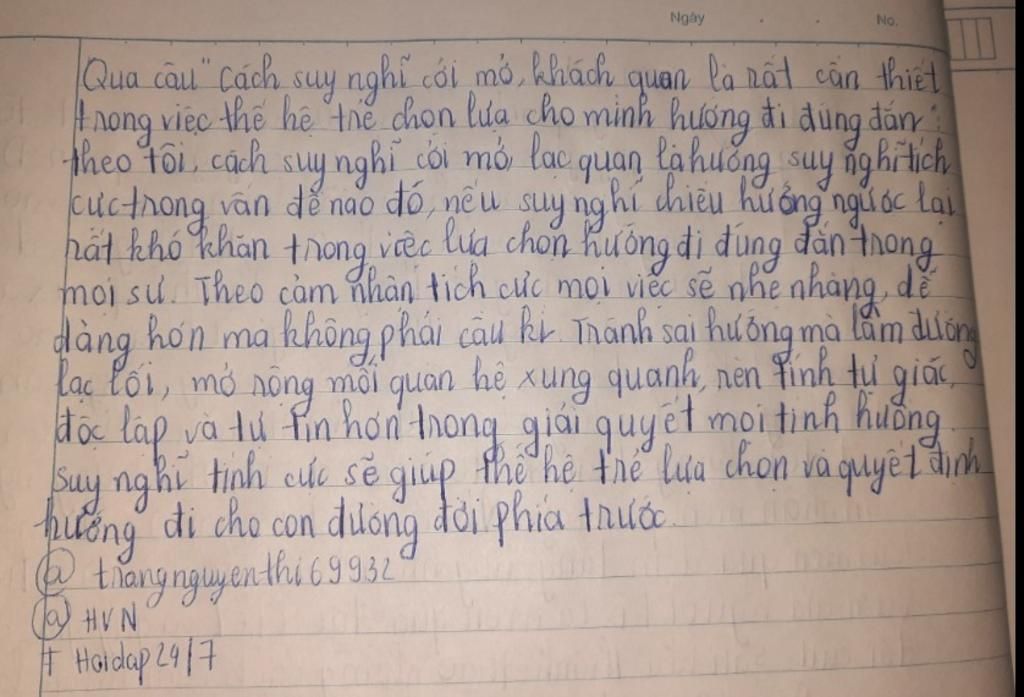 Ngày No.
Qua câu "Cách suy nghĩ cởi mở, khách quan là rất cần thiết
trong việc thế hệ trẻ chọn lựa cho mình hướng đi đúng đắn":
theo tôi, cách suy nghĩ cởi mở, lạc quan là hướng suy nghĩ tích
cực trong vấn đề nào đó, nếu suy nghĩ chiều hướng ngược lại
rất khó khăn trong việc lựa chọn hướng đi đúng đắn trong
mọi sự. Theo cảm nhận tích cực mọi việc sẽ nhẹ nhàng, dễ
dàng hơn mà không phải cầu kì. Tránh sai hướng mà lầm đường
lạc lối, mở rộng mối quan hệ xung quanh, rèn tính tự giác,
độc lập và tự tin hơn trong giải quyết mọi tình huống.
Suy nghĩ tính cực sẽ giúp thế hệ trẻ lựa chọn và quyết định
hướng đi cho con đường đời phía trước.
@ trangnguyenthi69932
@ HVN
# Hoidap24/7